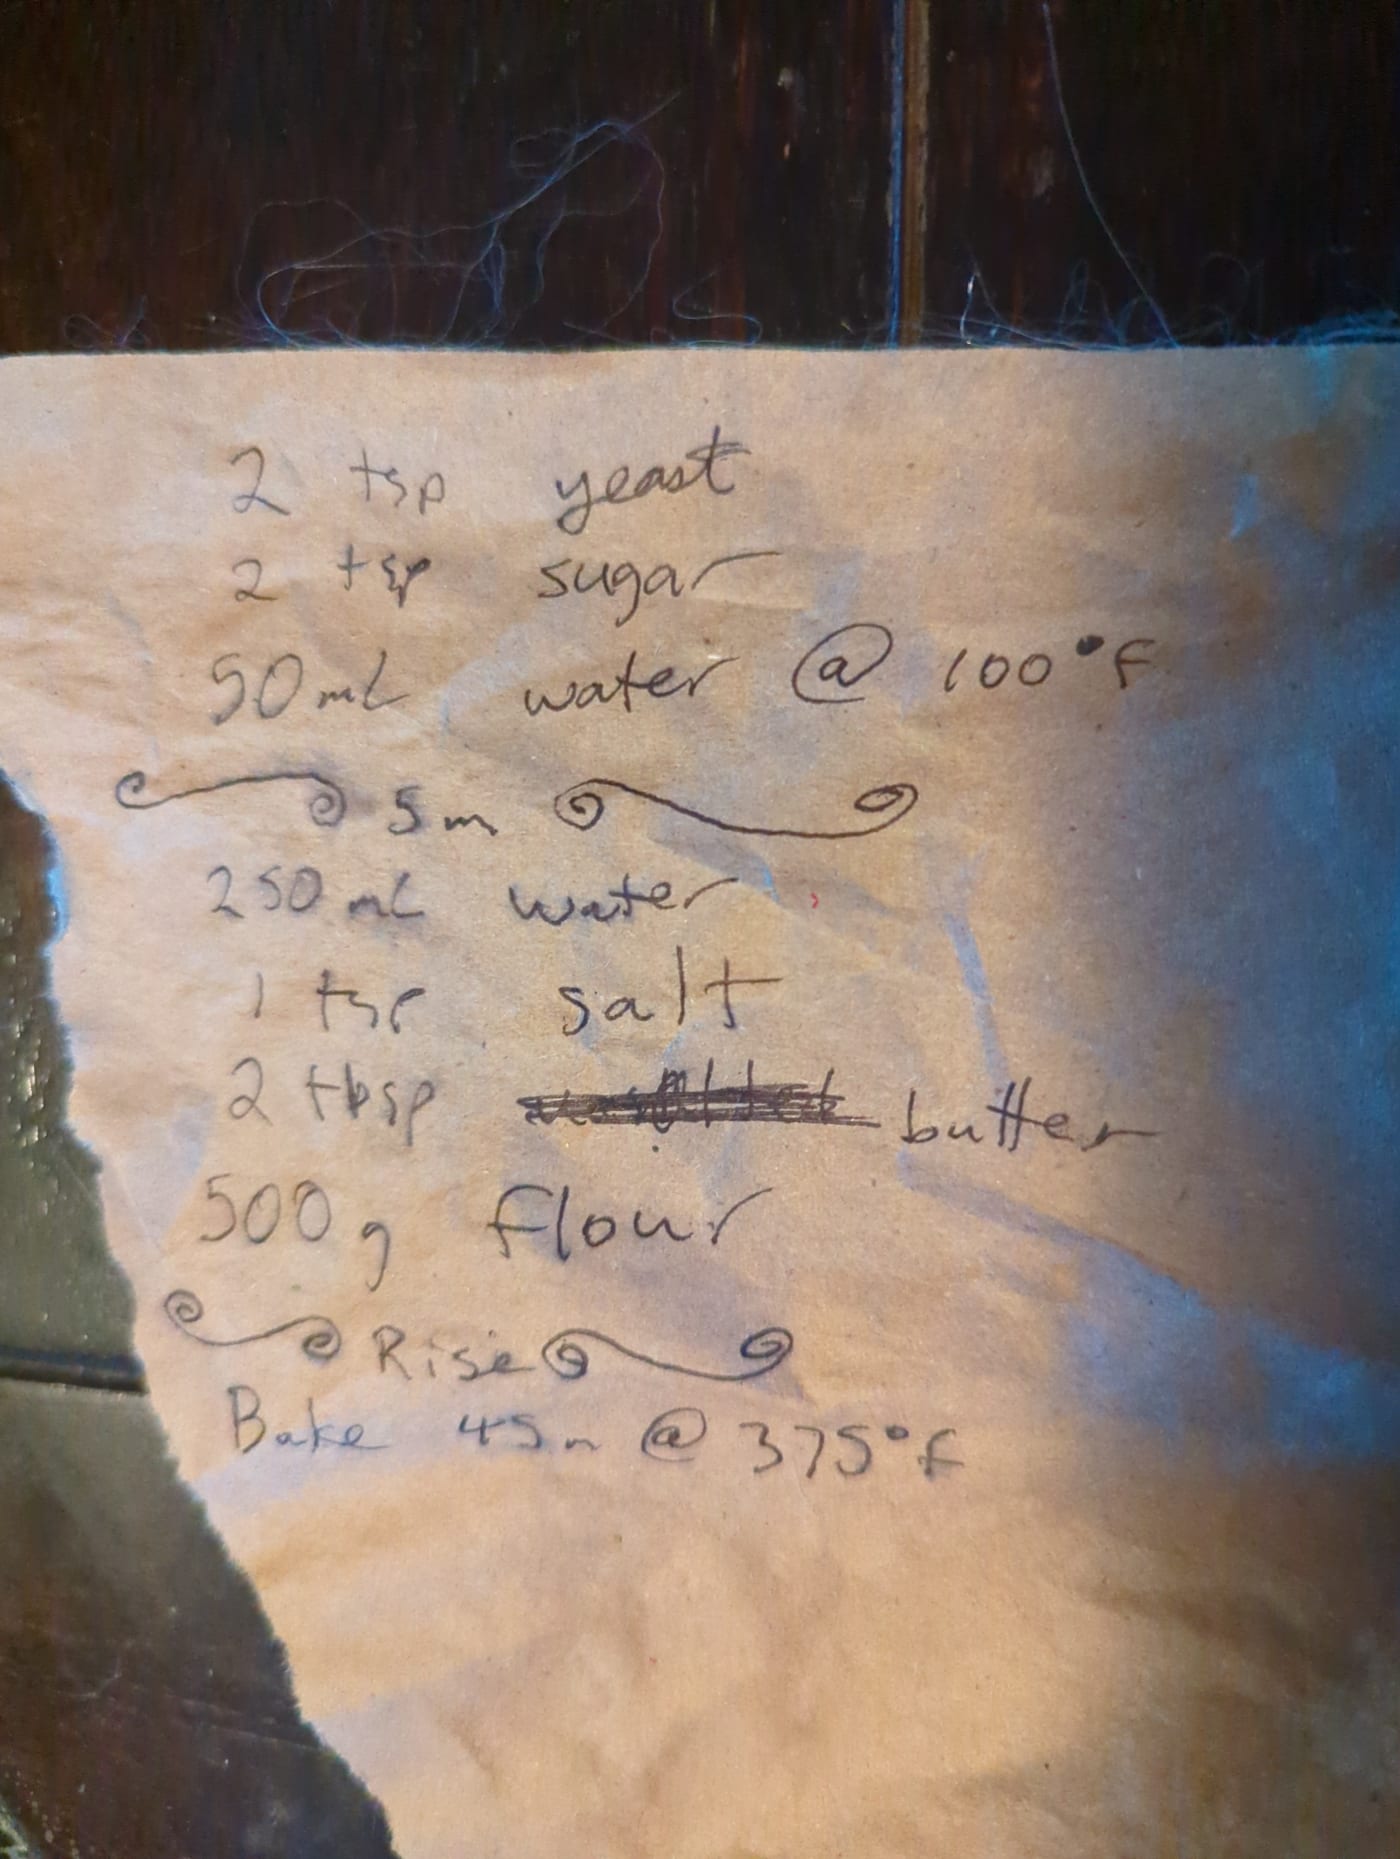 2 tsp yeast
2 tsp sugar
50 mL water @ 100°F
5m
250 mL water
1 tsp salt
2 tbsp butter
500 g flour
Rise
Bake 45m @ 375°F